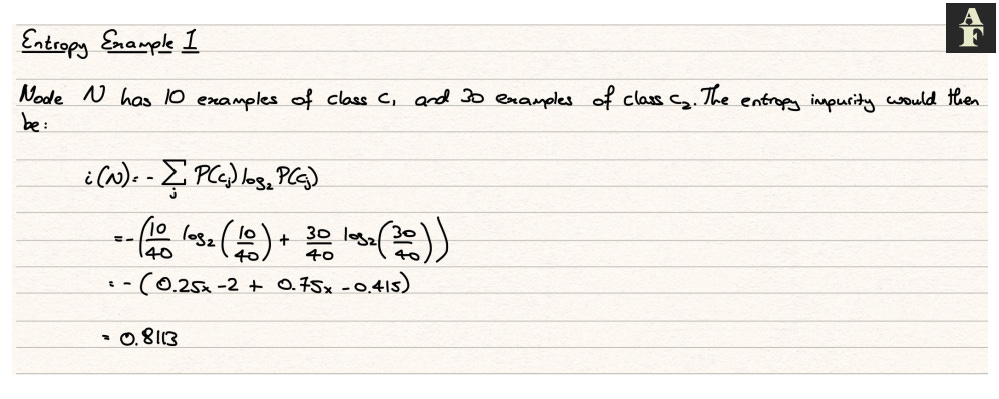 AF
Entropy Example 1
Node N has 10 examples of class c₁ and 30 examples of class c₂. The entropy impurity would then
be:
i(N) = - ∑ⱼ P(cⱼ) log₂ P(cⱼ)
= -(10/40 log₂(10/40) + 30/40 log₂(30/40))
= - (0.25x -2 + 0.75x -0.415)
= 0.8113